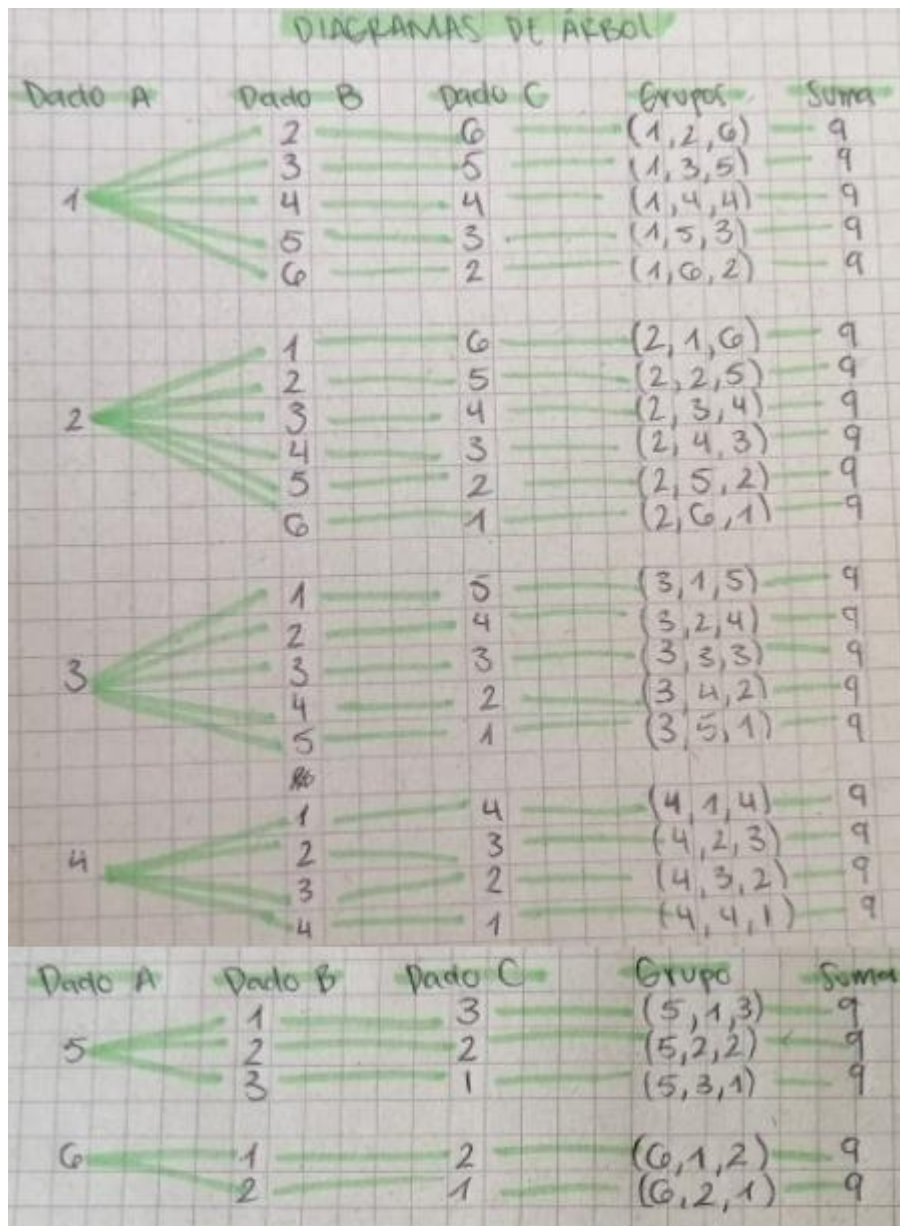 DIAGRAMAS DE ÁRBOL
Dado A Dado B Dado C Grupos Suma
2 6 (1,2,6) 9
3 5 (1,3,5) 9
1 4 4 (1,4,4) 9
5 3 (1,5,3) 9
6 2 (1,6,2) 9
1 6 (2,1,6) 9
2 5 (2,2,5) 9
2 3 4 (2,3,4) 9
4 3 (2,4,3) 9
5 2 (2,5,2) 9
6 1 (2,6,1) 9
1 5 (3,1,5) 9
2 4 (3,2,4) 9
3 3 3 (3,3,3) 9
4 2 (3,4,2) 9
5 1 (3,5,1) 9
1 4 (4,1,4) 9
4 2 3 (4,2,3) 9
3 2 (4,3,2) 9
4 1 (4,4,1) 9
Dado A Dado B Dado C Grupo Suma
1 3 (5,1,3) 9
5 2 2 (5,2,2) 9
3 1 (5,3,1) 9
6 1 2 (6,1,2) 9
2 1 (6,2,1) 9